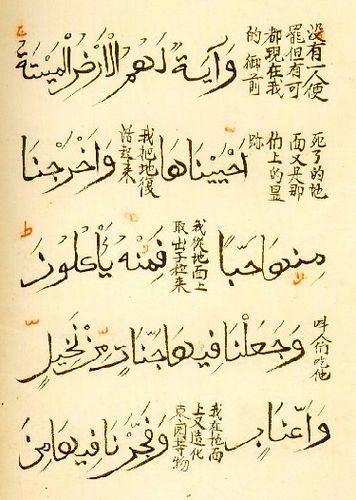 没有一人使
罷但有可
都現在我
的御前
وَآيَةٌ لَهُمُ الْأَرْضُ الْمَيْتَةُ
死了的地
面又是那
上的显
跡
أَحْيَيْنَاهَا
我把地復
活起来
وَأَخْرَجْنَا
مِنْهَا حَبًّا
我從地面上
取出子粒来
فَمِنْهُ يَأْكُلُونَ
吃他
وَجَعَلْنَا فِيهَا جَنَّاتٍ مِنْ نَخِيلٍ
وَأَعْنَابٍ
我在地面
上又造化
园等物
وَفَجَّرْنَا فِيهَا مِنَ